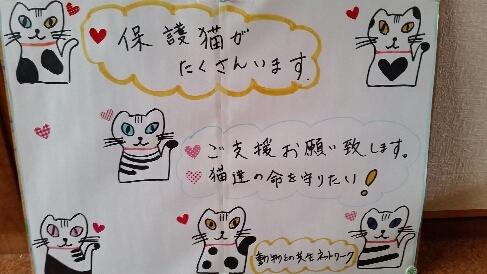 保護猫が
たくさんいます.
ご支援お願い致します。
猫達の命を守りたい!
動物との共生ネットワーク